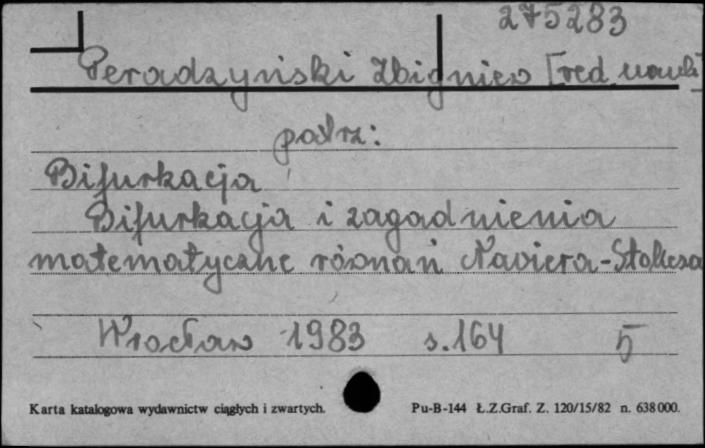 275283
Peradzyński Zbigniew [red. nauk.]
patrz:
Bifurkacja
Bifurkacja i zagadnienia
matematyczne równań Naviera-Stokesa
Wrocław 1983 s.164 5
Karta katalogowa wydawnictw ciągłych i zwartych. Pu-B-144 Ł.Z.Graf. Z. 120/15/82 n. 638000.